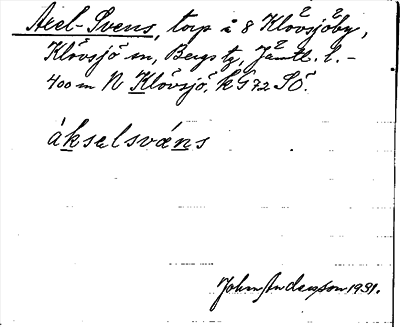 Axel-Svens, torp i 8 Klövsjöby,
Klövsjö sn, Bergs tg, Jämtl. l. –
400 m N Klövsjö. kG 72 SO.
ákselsváns
John Andersson 1931.